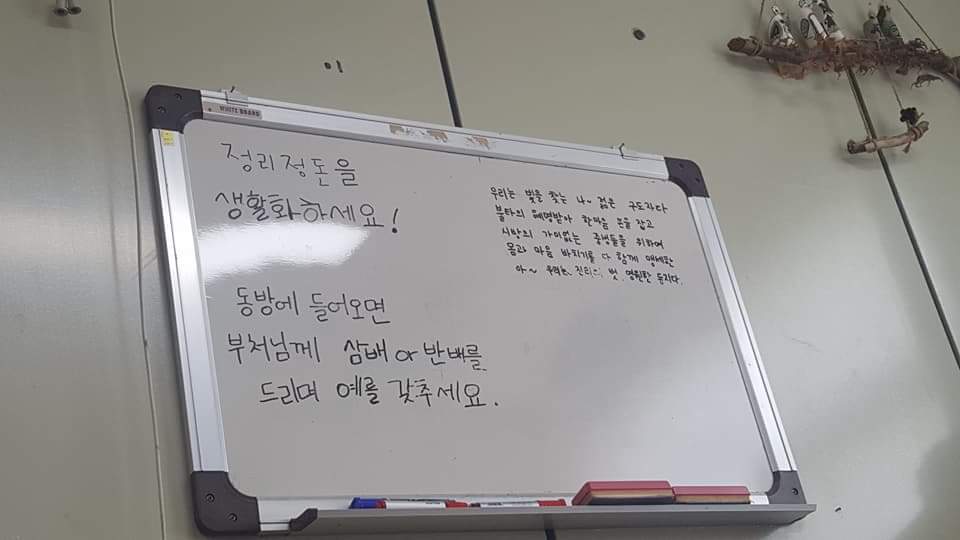 WHITE BOARD
정리정돈을
생활화하세요!
동방에 들어오면
부처님께 삼배 or 반배를
드리며 예를 갖추세요.
우리는 빛을 찾는 나~ 젊은 구도자다
불타의 혜명받아 한마음 손을 잡고
시방의 가이없는 중생들을 위하여
몸과 마음 바치기를 다 함께 맹세한
아~ 우리는, 진리의 벗, 영원한 동지다.